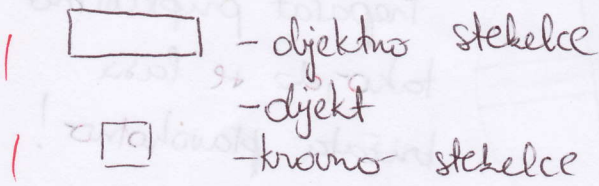 - objektno stekelce
- objekt
- krovno stekelce